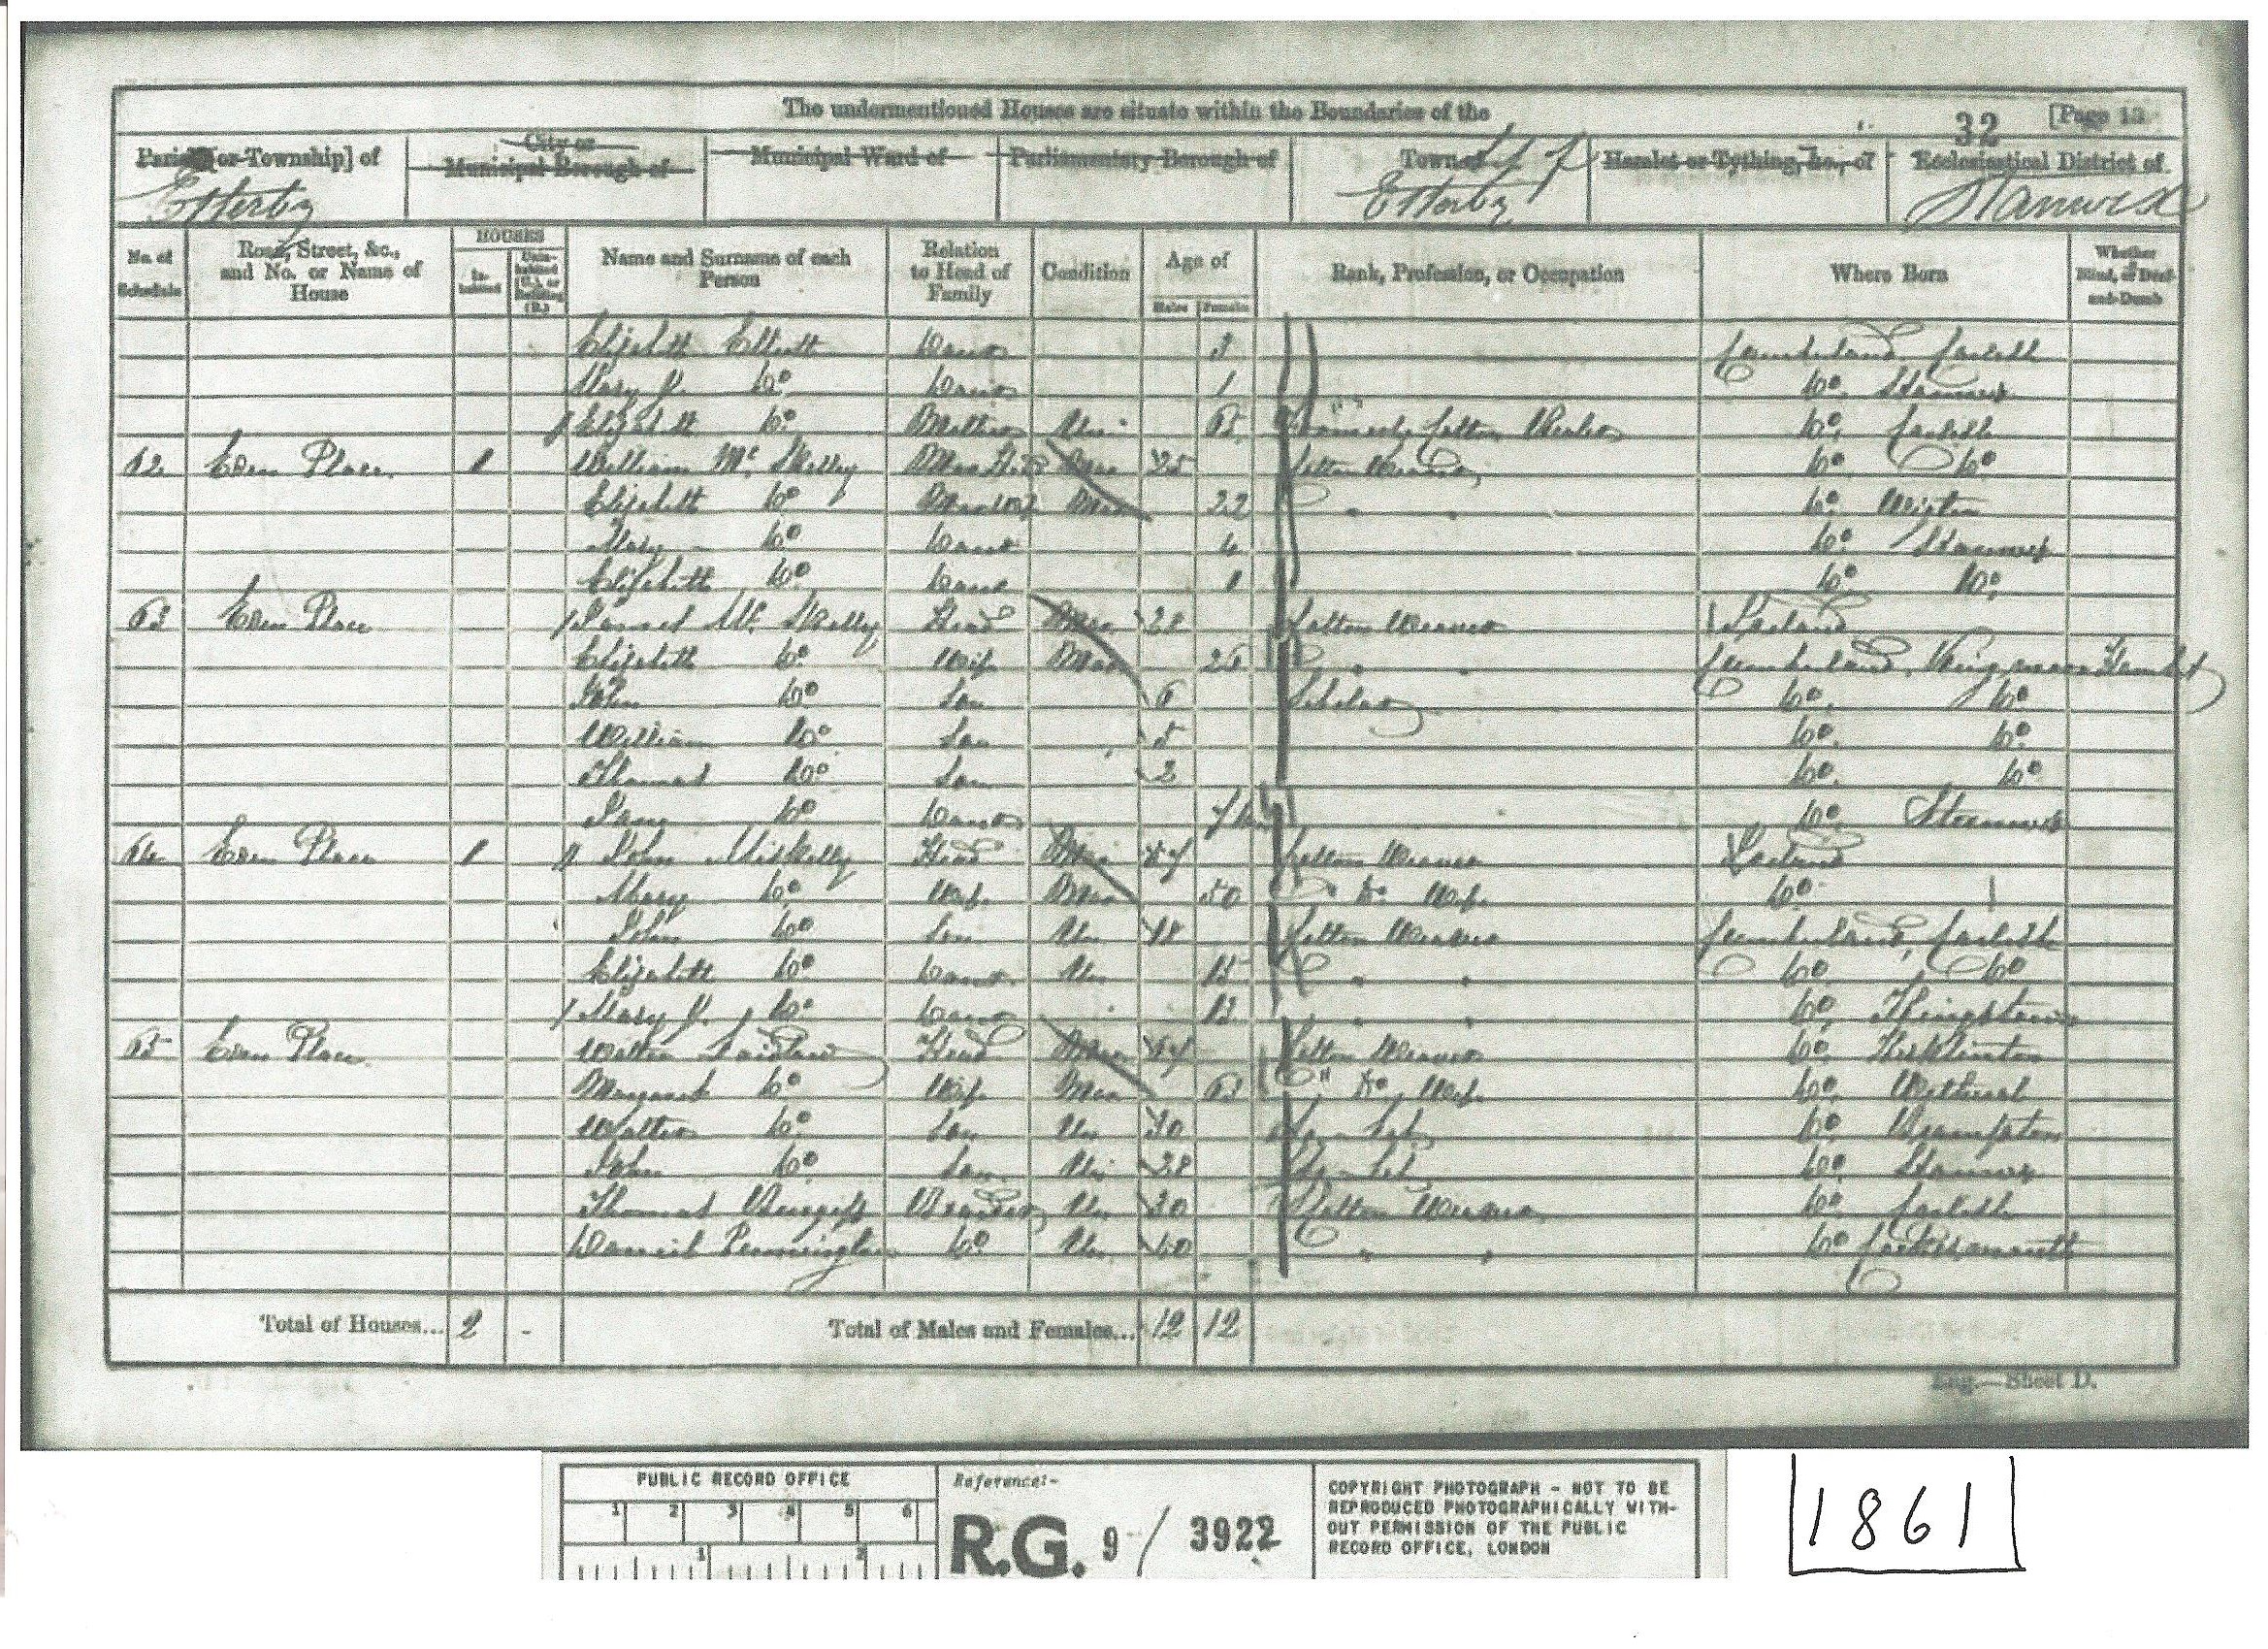 The undermentioned Houses are situate within the Boundaries of the
32 [Page 13
Parish [or Township] of City or Municipal Borough of Municipal Ward of Parliamentary Borough of Town of Hamlet or Tything, &c., of Ecclesiastical District of
Etterby Etterby Stanwix
No. of Schedule Road, Street, &c., and No. or Name of House HOUSES Inhabited Uninhabited (U.), or Building (B.) Name and Surname of each Person Relation to Head of Family Condition Age of Males Females Rank, Profession, or Occupation Where Born Whether Blind, or Deaf-and-Dumb
Elizabeth Elliott Daur 3 Cumberland, Carlisle
Mary J. Do Daur 1 Do Stanwix
Elizabeth Do Mother Un 65 Formerly Cotton Do Carlisle
62 Eden Place 1 William Mc Skelly Head Mar 25 Cotton Weaver Do Do
Elizabeth Do Mar 22 " " Do Wigton
Mary Do Daur 4 Do Stanwix
Elizabeth Do Daur 1 Do Do
63 Eden Place Mc Skelly Head Mar 28 Cotton Weaver Ireland
Elizabeth Do Wife Mar 25 " " Cumberland,
John Do Son 6 Scholar Do Do
William Do Son 5 Do Do
Thomas Do Son 2 Do Do
Jane Do Daur Do Stanwix
64 Eden Place 1 John Miskelly Head Mar 57 Cotton Weaver Ireland
Mary Do Wife Mar 50 Do Wife Do
John Do Son Un 18 Cotton Weaver Cumberland, Carlisle
Elizabeth Do Daur Un 15 " " Do Do
Mary J. Do Daur 12 " " Do Kingstown
65 Eden Place Walter Laidlaw Head Mar 64 Cotton Weaver Do Kirklinton
Margaret Do Wife Mar 63 " Do Wife Do Wetheral
Walter Do Son Un 30 Do Brampton
John Do Son Un 28 Do Stanwix
Thomas Boarder Un 30 Cotton Weaver Do Carlisle
Daniel Pennington Do Un 60 " " Do Cockermouth
Total of Houses... 2 - Total of Males and Females... 12 12
Eng.—Sheet D.
PUBLIC RECORD OFFICE
1 2 3 4 5 6
1 2
Reference:-
R.G. 9 / 3922
COPYRIGHT PHOTOGRAPH - NOT TO BE
REPRODUCED PHOTOGRAPHICALLY WITH-
OUT PERMISSION OF THE PUBLIC
RECORD OFFICE, LONDON
1861